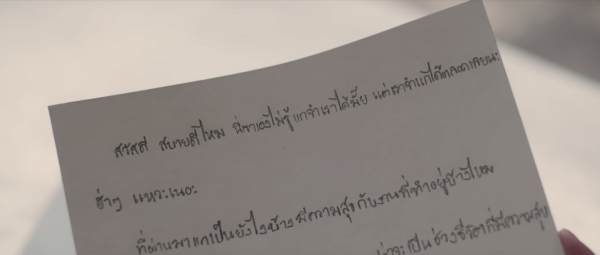 สวัสดี สบายดีไหม นี่เราเองไม่รู้แกจำเราได้มั้ย แต่เราจำแกได้ตลอดเลยนะ
ฮ่าๆ แหวะเนอะ
ที่ผ่านมาแกเป็นยังไงบ้าง มีความสุขกับงานที่ทำอยู่บ้างไหม
น่าจะเป็นช่วงชีวิตที่มีความสุข